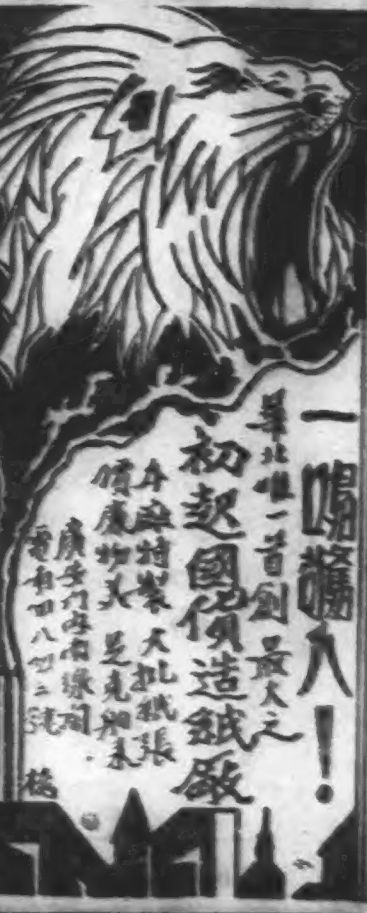 一鳴驚人！
華北唯一首創最大之
初起國貨造紙廠
本廠特製大批紙張
價廉物美 足克舶來
廣安門內南線閣
電南四八四二號